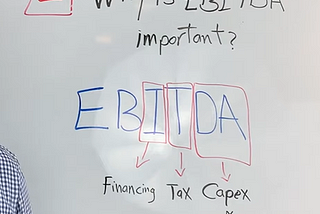 Why is EBITDA
important?
EBITDA
Financing Tax Capex